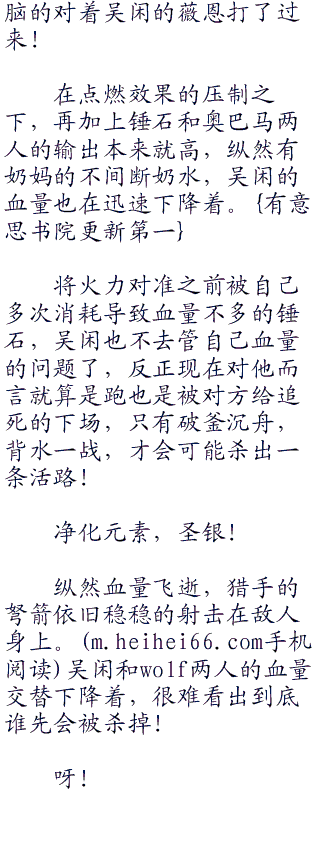 脑的对着吴闲的薇恩打了过
来！
在点燃效果的压制之
下，再加上锤石和奥巴马两
人的输出本来就高，纵然有
奶妈的不间断奶水，吴闲的
血量也在迅速下降着。{有意
思书院更新第一}
将火力对准之前被自己
多次消耗导致血量不多的锤
石，吴闲也不去管自己血量
的问题了，反正现在对他而
言就算是跑也是被对方给追
死的下场，只有破釜沉舟，
背水一战，才会可能杀出一
条活路！
净化元素，圣银！
纵然血量飞逝，猎手的
弩箭依旧稳稳的射击在敌人
身上。(m.heihei66.com手机
阅读)吴闲和wolf两人的血量
交替下降着，很难看出到底
谁先会被杀掉！
呀！